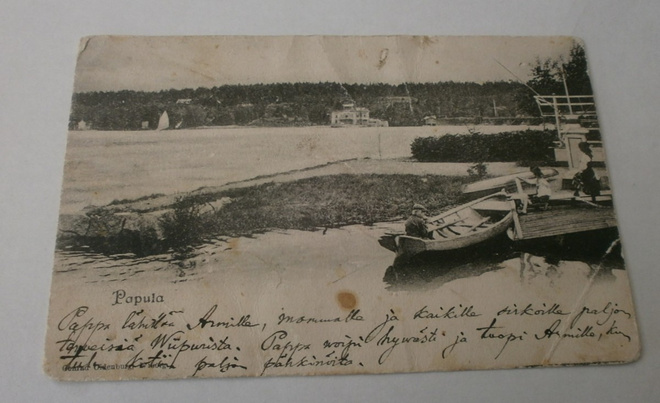 Papula
Pappa lähettää Armille, mommalle ja kaikille siskoille paljon
terveisiä Wiipurista. Pappa voipi hywästi ja tuopi Armille, kun
tulee kotia paljo pähkinöitä.